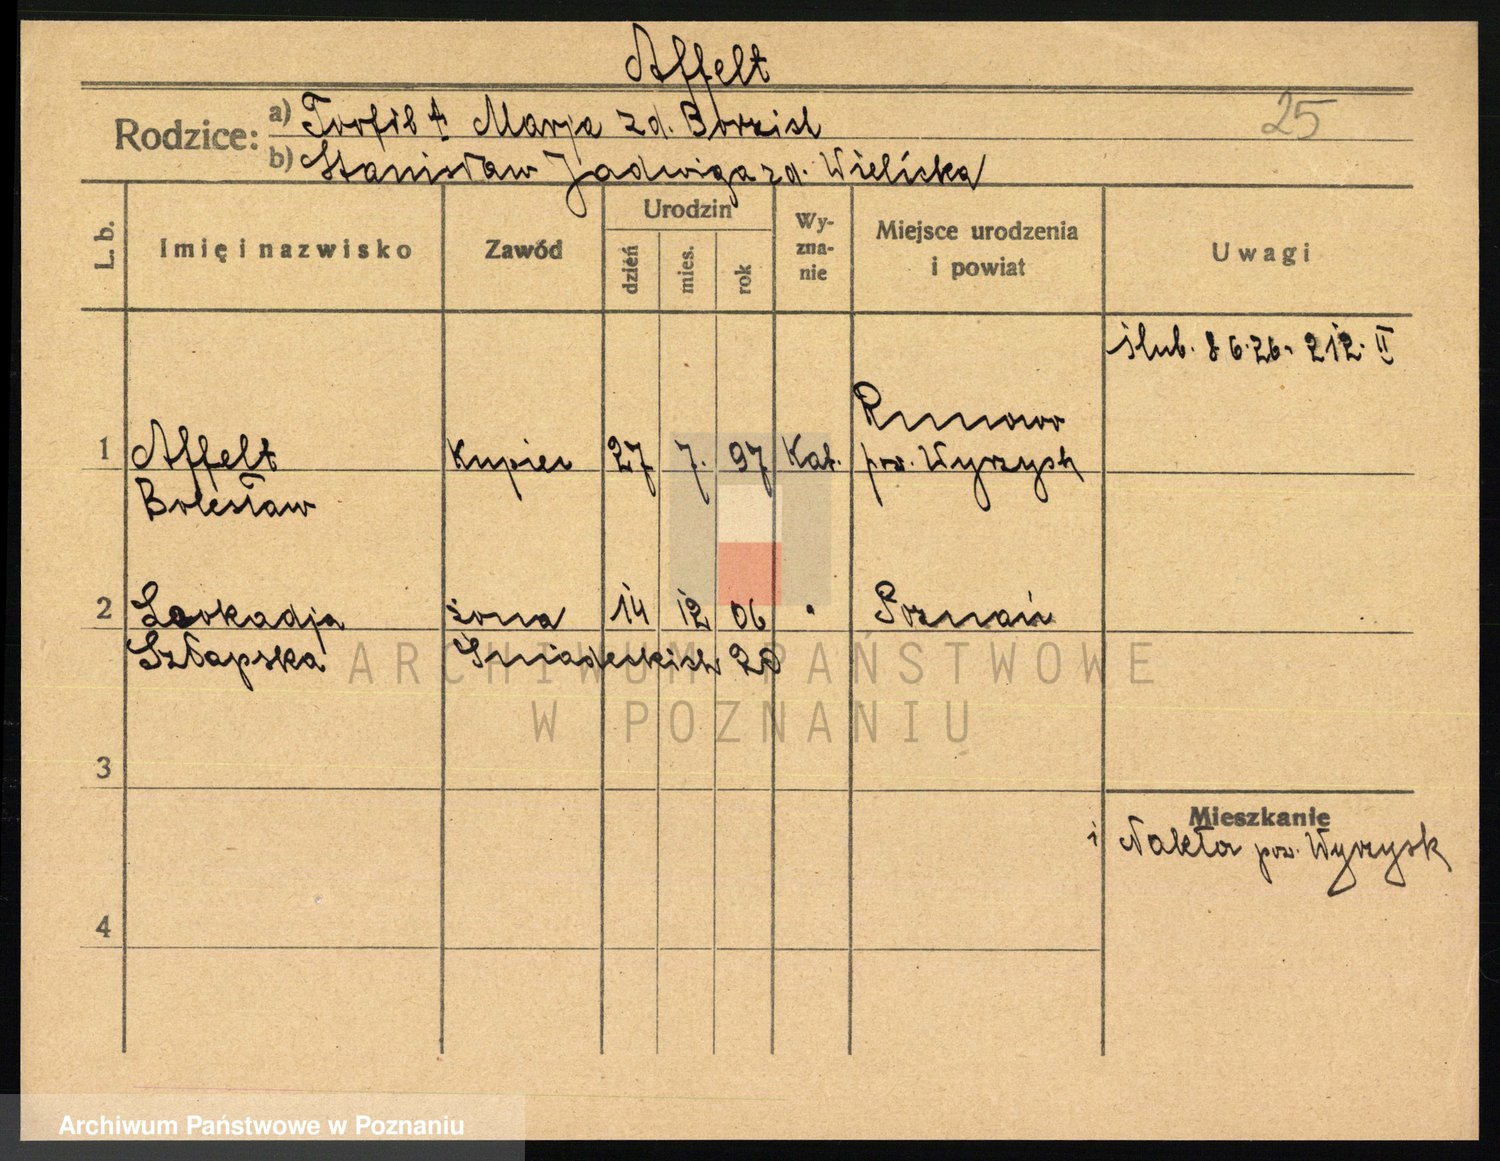 Affelt
25
Rodzice: a) Teofil A Marja zd. Borzich
b) Stanisław Jadwiga zd. Wielicka
L. b. Imię i nazwisko Zawód Urodzin dzień mies. rok Wyzna-nie Miejsce urodzenia i powiat Uwagi
ślub. 8 6. 26. 212. II
1 Affelt Kupiec 27 7. 97 Kat. Runowo pow. Wyrzysk
Bolesław
2 Leokadja żona 14 12 06 " Poznań
Szłapska Śniadeckich 28
ARCHIWUM PAŃSTWOWE
W POZNANIU
3
Mieszkanie
i Nakło pow. Wyrzysk
4
Archiwum Państwowe w Poznaniu